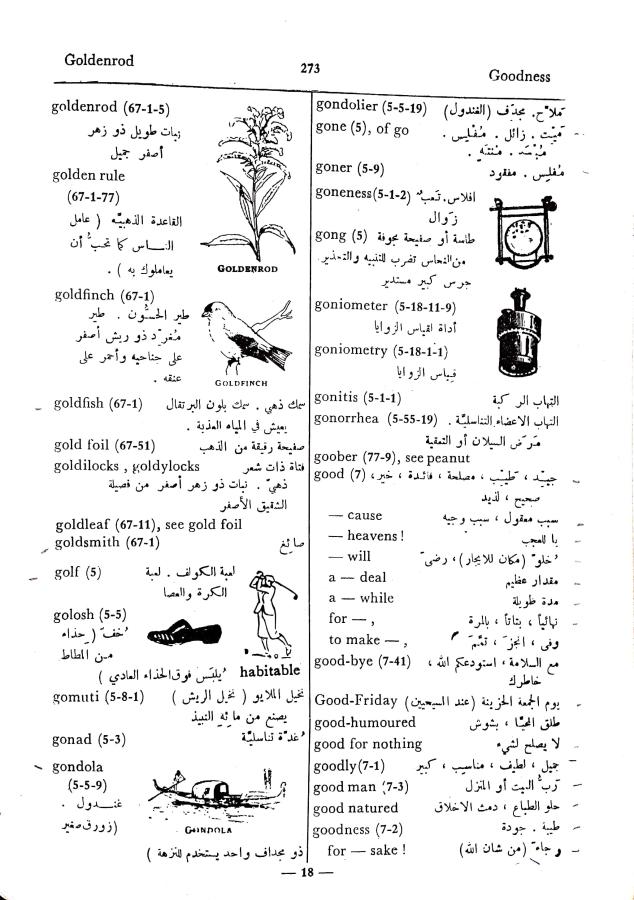 Goldenrod
273
Goodness
goldenrod (67-1-5)
نبات طويل ذو زهر
أصفر جميل
golden rule
(67-1-77)
القاعدة الذهبيّه ( عامل
النـاس كما تحبّ أن
يعاملوك به ) .
GOLDENROD
goldfinch (67-1)
طير الحسّون . طير
مغرّد ذو ريش أصفر
على جناحيه وأحمر على
عنقه .
GOLDFINCH
goldfish (67-1) سمك ذهبي . سمك بلون البرتقال
يعيش في المياه العذبة .
gold foil (67-51) صفيحة رقيقة من الذهب
goldilocks , goldylocks فتاة ذات شعر
ذهبيّ . نبات ذو زهر أصفر من فصيلة
الشقيق الأصفر
goldleaf (67-11), see gold foil
goldsmith (67-1) صائغ
golf (5) لعبة الكولف . لعبة
الكرة والعصا
golosh (5-5)
خفّ ( حذاء
من المطاط
يُلبَس فوق الحذاء العادي )
habitable
gomuti (5-8-1) نخيل الملايو ( نخيل الريش )
يصنع من مائه النبيذ
gonad (5-3) غدّة تناسليّة
gondola
(5-5-9)
غندول .
(زورق صغير
GONDOLA
ذو مجداف واحد يستخدم للنزهة )
gondolier (5-5-19) ملاّح. مجدّف (الغندول)
gone (5), of go ميّت . زائل . مُفلِس .
goner (5-9) مُفلس . مفقود
goneness(5-1-2) افلاس. تعب
زوال
gong (5) طاسة أو صفيحة مجوفة
من النحاس تضرب للتنبيه والتحذير
جرس كبير مستدير
goniometer (5-18-11-9)
أداة لقياس الزوايا
goniometry (5-18-1-1)
قياس الزوايا
gonitis (5-1-1) التهاب الركبة
gonorrhea (5-55-19) التهاب الاعضاء التناسليّة .
مرض السيلان أو التعقية
goober (77-9), see peanut
good (7) جيّد ، طيّب ، مصلحة ، فائدة ، خير ،
صحيح ، لذيذ
— cause سبب معقول ، سبب وجيه
— heavens ! يا للعجب
— will خلوّ (مكان للايجار) ، رضىً
a — deal مقدار عظيم
a — while مدة طويلة
for — , نهائياً ، بتاتاً ، بالمرة
to make — , وفى ، انجز ، تمّم
good-bye (7-41) مع السلامة ، استودعكم الله ،
خاطرك
Good-Friday يوم الجمعة الحزينة (عند المسيحيين)
good-humoured طلق المحيّا ، بشوش
good for nothing لا يصلح لشيء
goodly(7-1) جميل ، لطيف ، مناسب ، كبير
good man (7-3) ربّ البيت أو المنزل
good natured حلو الطباع ، دمث الاخلاق
goodness (7-2) طيبة . جودة
for — sake ! (من شان الله)
— 18 —